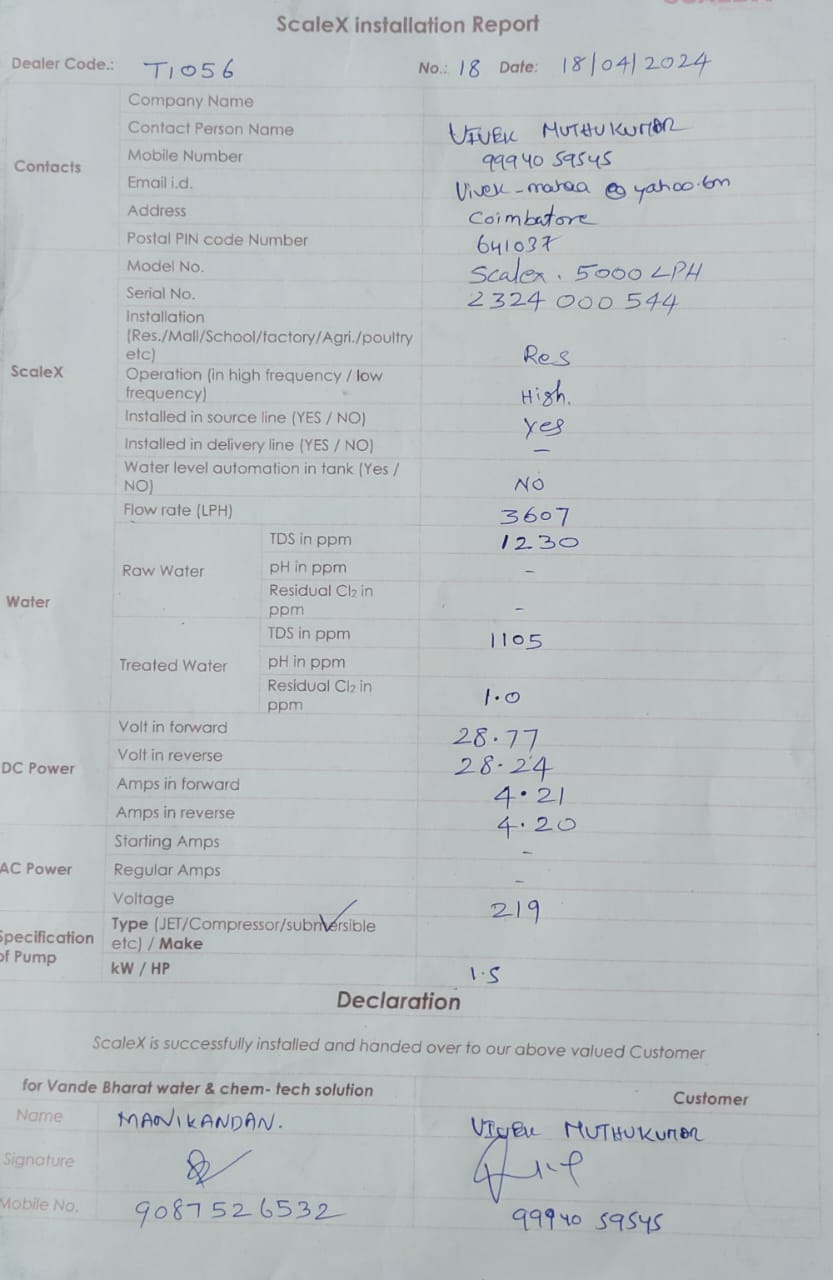 ScaleX installation Report
Dealer Code.: T1056 No.: 18 Date: 18/04/2024
Contacts
Company Name
Contact Person Name VIVEK MUTHUKUMAR
Mobile Number 99940 59545
Email i.d. @yahoo.
Address Coimbatore
Postal PIN code Number 641037
ScaleX
Model No. Scalex. 5000 LPH
Serial No. 2324 000 544
Installation
(Res./Mall/School/factory/Agri./poultry
etc) Res
Operation (in high frequency / low
frequency) High.
Installed in source line (YES / NO) Yes
Installed in delivery line (YES / NO) –
Water level automation in tank (Yes /
NO) NO
Water
Flow rate (LPH) 3607
Raw Water
TDS in ppm 1230
pH in ppm –
Residual Cl2 in
ppm –
Treated Water
TDS in ppm 1105
pH in ppm
Residual Cl2 in
ppm 1.0
DC Power
Volt in forward 28.77
Volt in reverse 28.24
Amps in forward 4.21
Amps in reverse 4.20
AC Power
Starting Amps –
Regular Amps –
Voltage 219
Specification
of Pump
Type (JET/Compressor/submersible
etc) / Make
kW / HP 1.5
Declaration
ScaleX is successfully installed and handed over to our above valued Customer
for Vande Bharat water & chem- tech solution Customer
Name MANIKANDAN. VIVEK MUTHUKUMAR
Signature
Mobile No. 9087526532 99940 59545